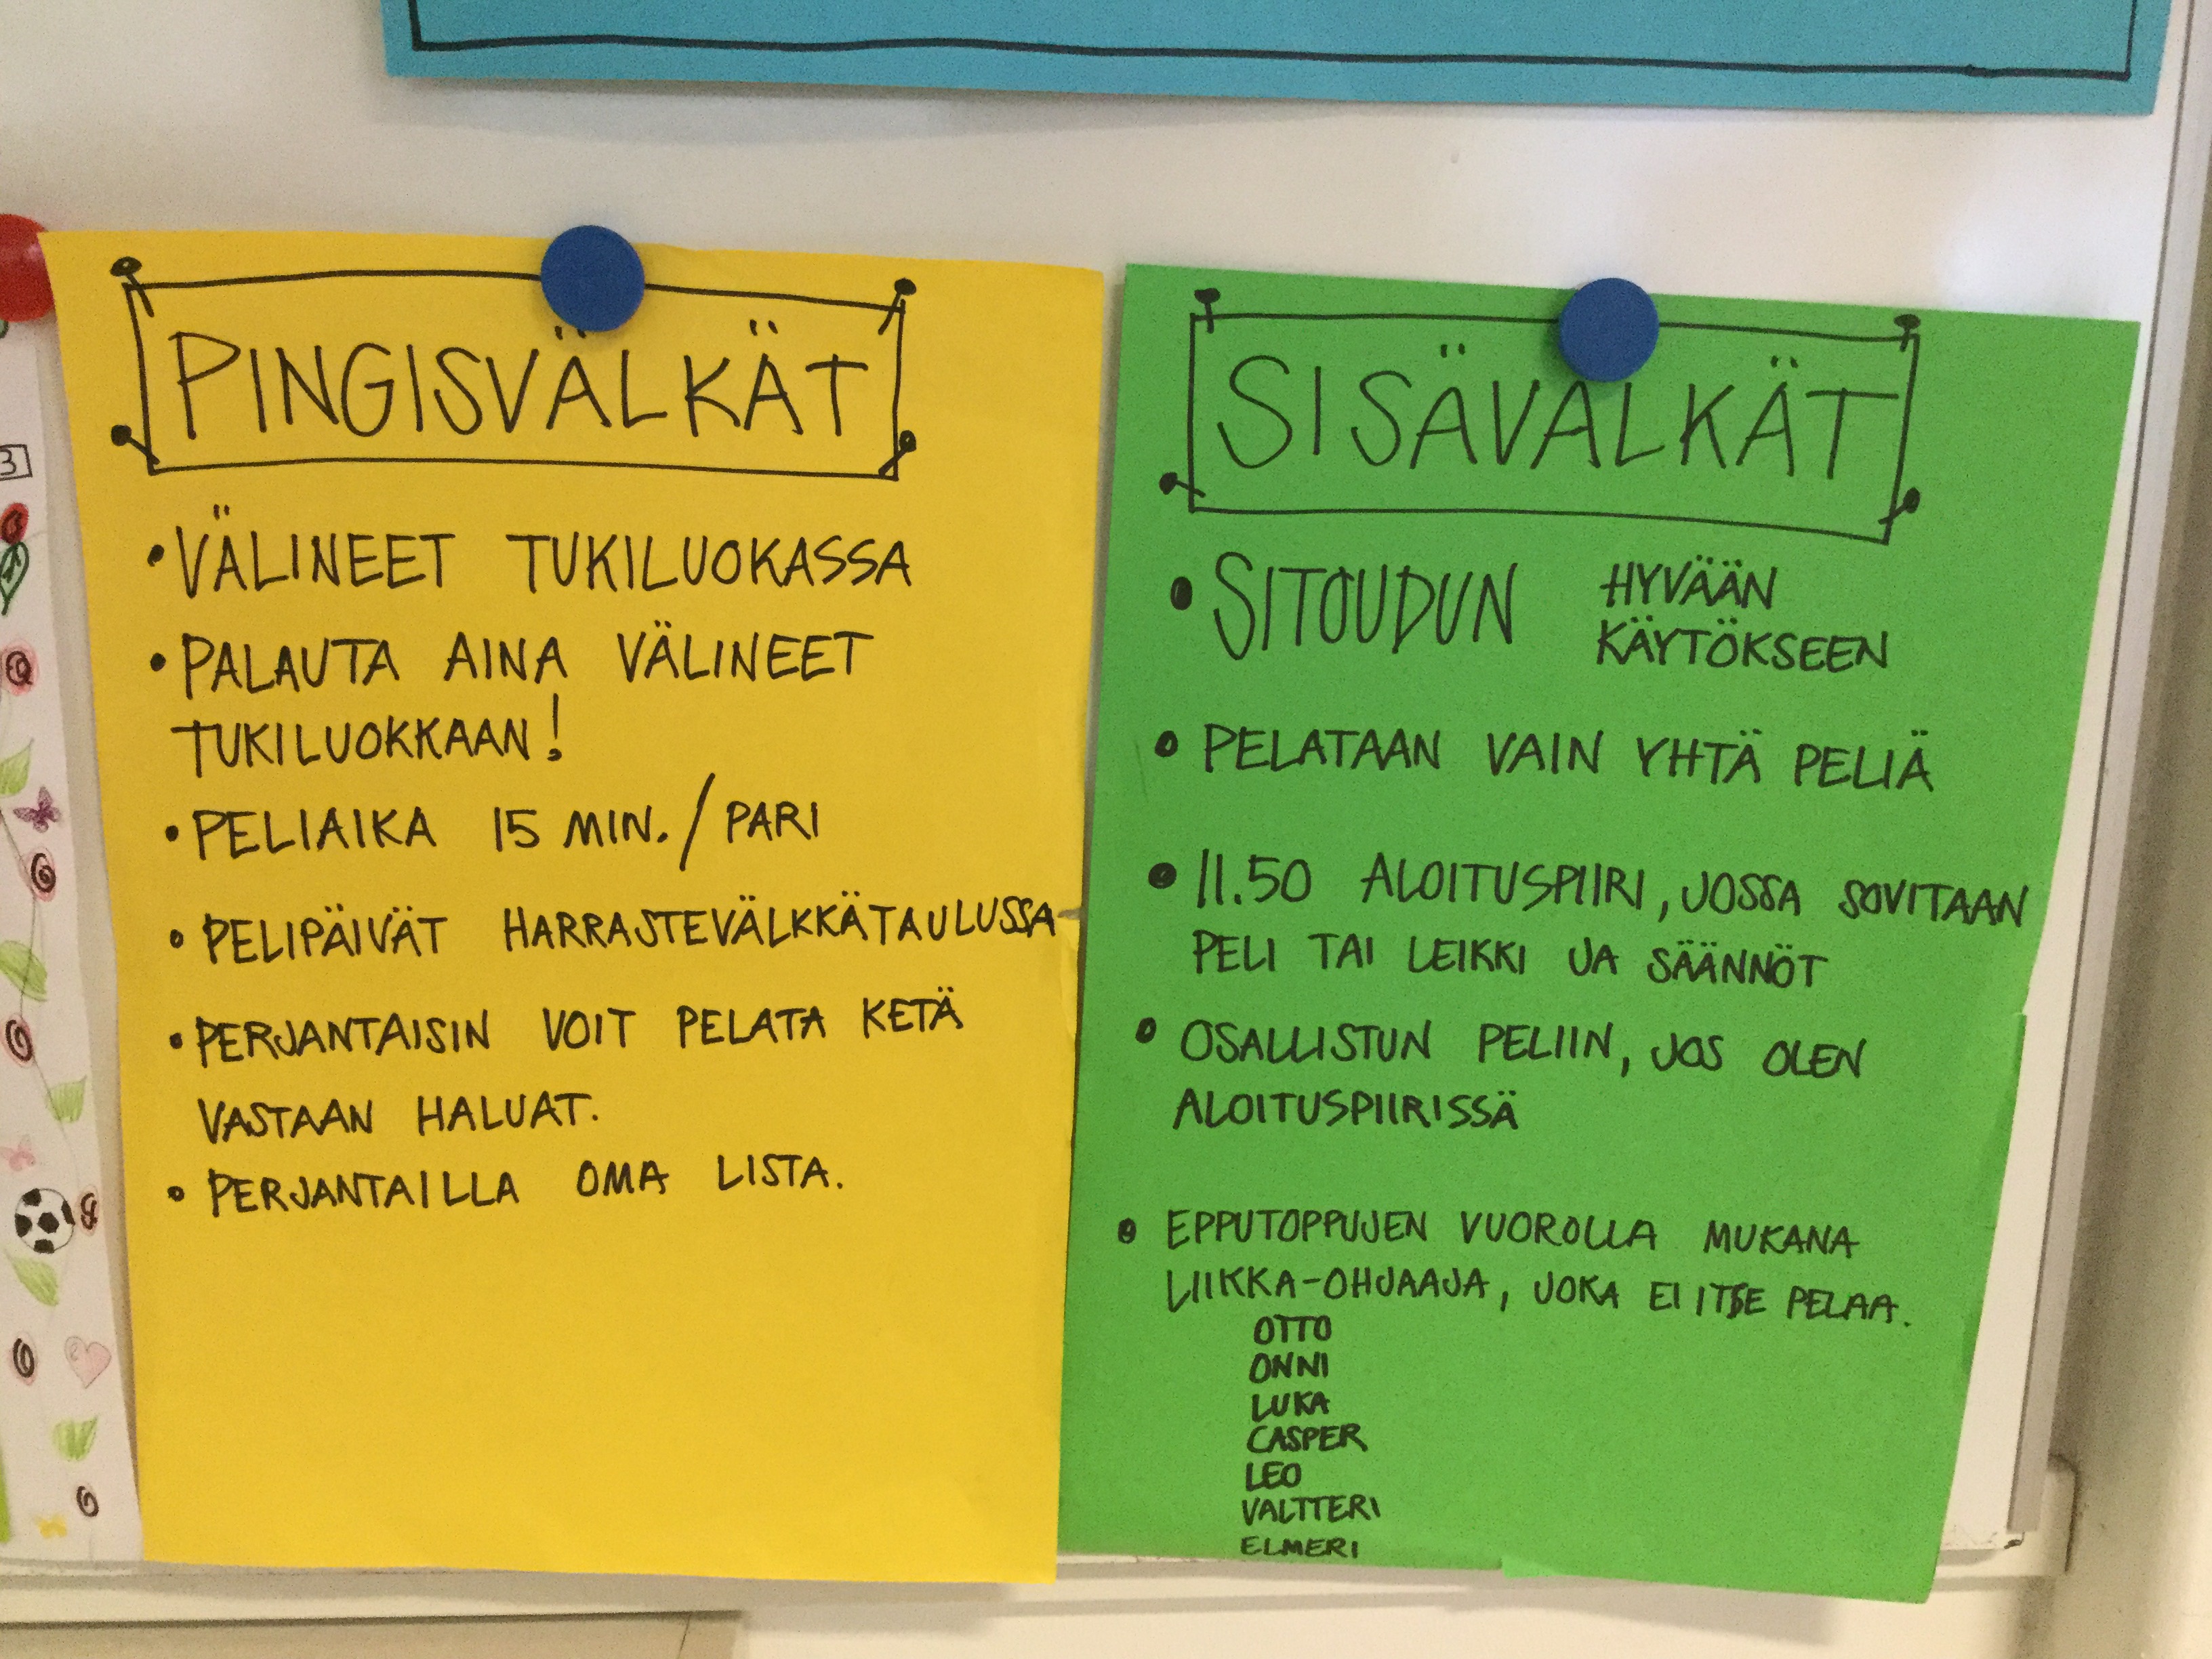 PINGISVÄLKÄT
• VÄLINEET TUKILUOKASSA
• PALAUTA AINA VÄLINEET
TUKILUOKKAAN!
• PELIAIKA 15 MIN. / PARI
• PELIPÄIVÄT HARRASTEVÄLKKÄTAULUSSA
• PERJANTAISIN VOIT PELATA KETÄ
VASTAAN HALUAT.
• PERJANTAILLA OMA LISTA.
SISÄVÄLKÄT
• SITOUDUN HYVÄÄN
KÄYTÖKSEEN
• PELATAAN VAIN YHTÄ PELIÄ
• 11.50 ALOITUSPIIRI, JOSSA SOVITAAN
PELI TAI LEIKKI JA SÄÄNNÖT
• OSALLISTUN PELIIN, JOS OLEN
ALOITUSPIIRISSÄ
• EPPUTOPPUJEN VUOROLLA MUKANA
LIIKKA-OHJAAJA, JOKA EI ITSE PELAA.
OTTO
ONNI
LUKA
CASPER
LEO
VALTTERI
ELMERI
3